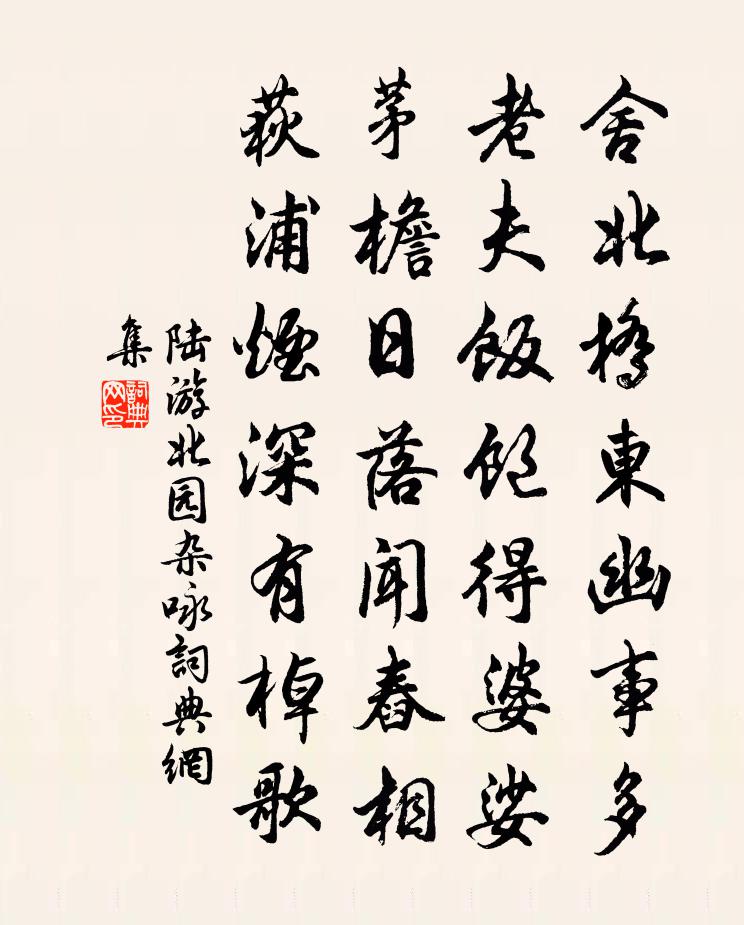 舍北橋東幽事多
老夫飯飽得婆娑
茅檐日落聞舂相
荻浦煙深有棹歌
陆游北园杂咏詞典網
集
詞典網印